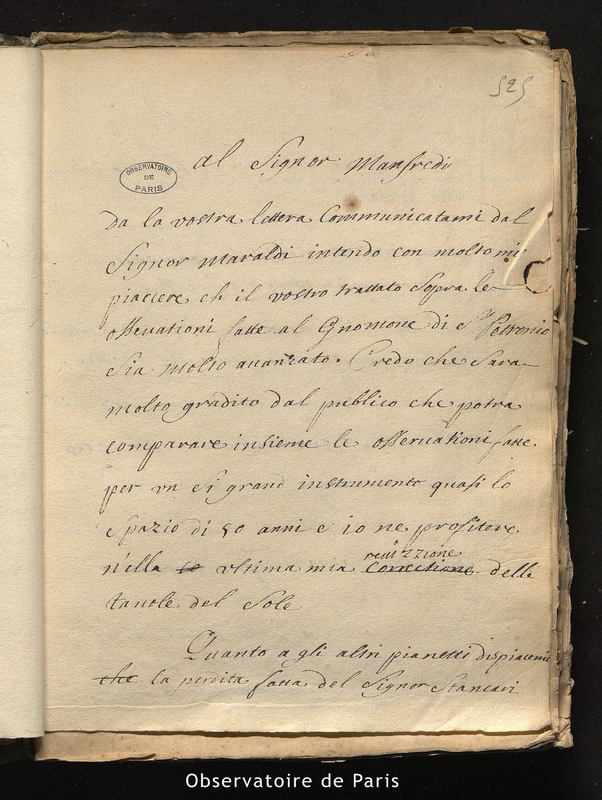 525
OBSERVATOIRE
DE
PARIS
al Signor Manfredi
da la vostra lettera Communicatami dal
Signor Maraldi intendo con molto mi
piacere ch il vostro trattato Sopra le
osseruationi fatte al Gnomone di St Petronio
Sia molto auanzato. Credo che Sara
molto gradito dal publico che potra
comparare insieme le osseruationi fatte
per vn si grand instrumento quasi lo
spazio di 50 anni e io ne profitere
nella vltima mia reuizzione Correctione delle
tauole del Sole
Quanto a gli altri pianetti dispiacemi
che la perdita fatta del Signor Stancari
Observatoire de Paris